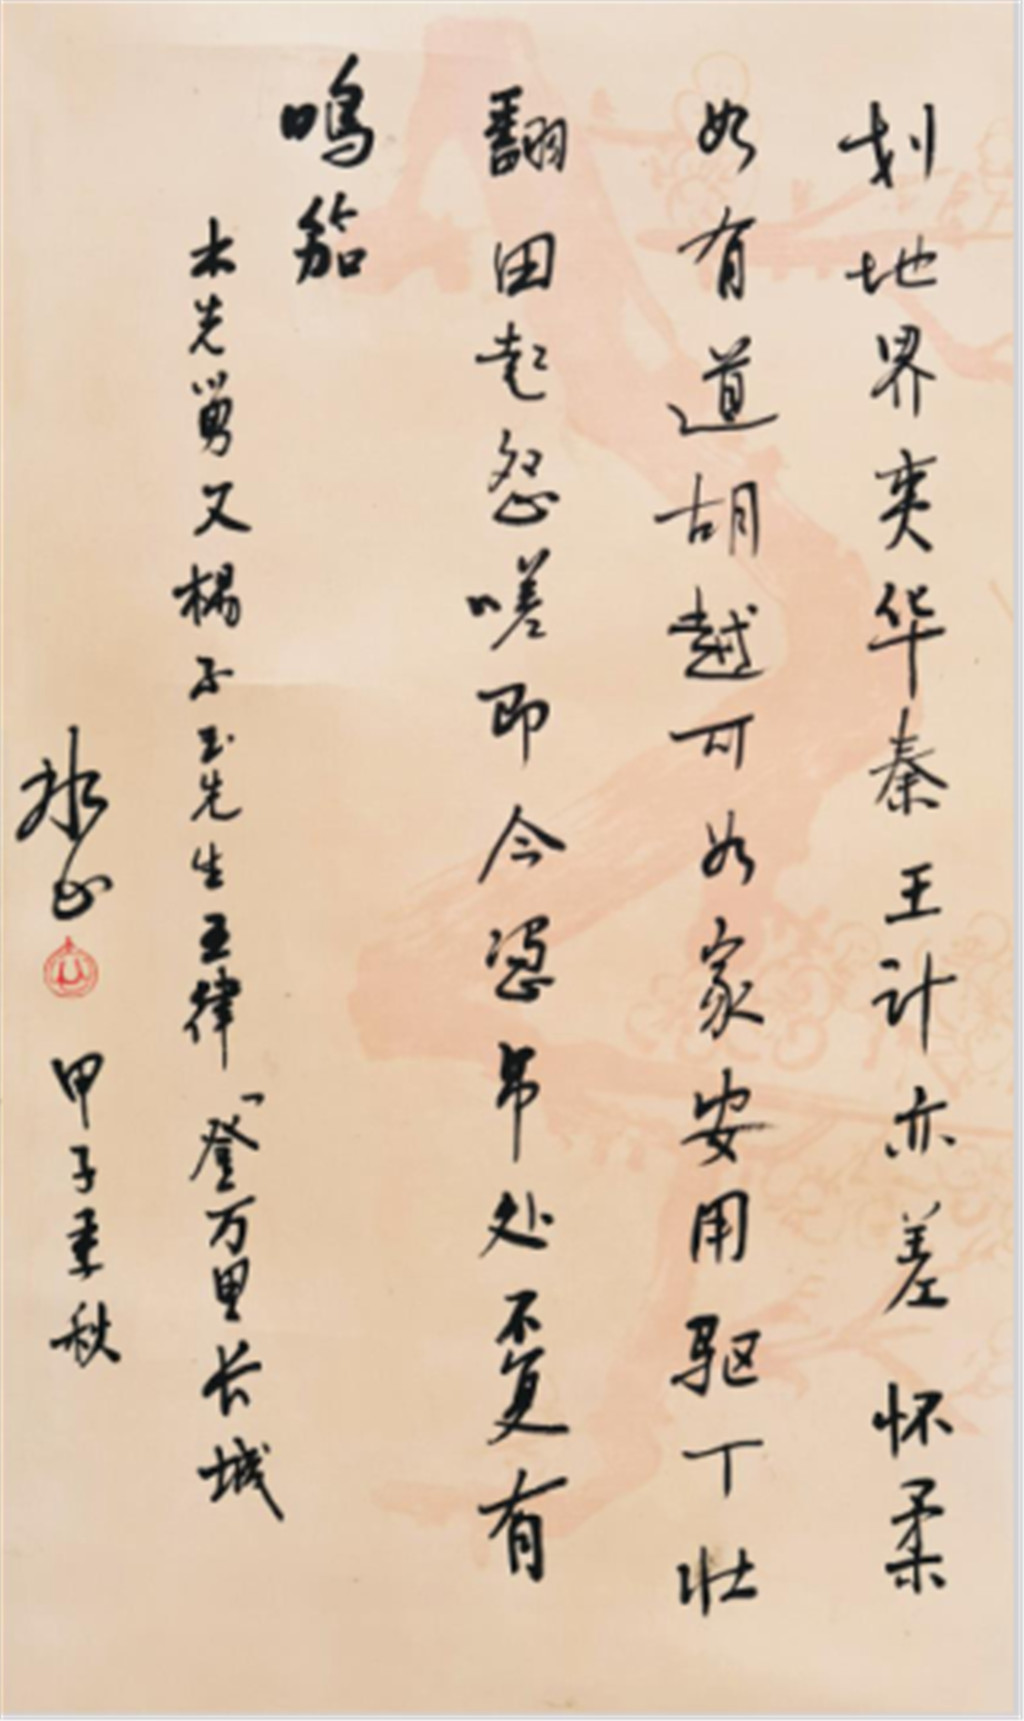 划地界夷华秦王计亦差怀柔
如有道胡越可如家安用驱丁壮
翻田起怨嗟即今憑吊处不复有
鸣笳
先舅父杨子玉先生五律「登万里长城
甲子季秋